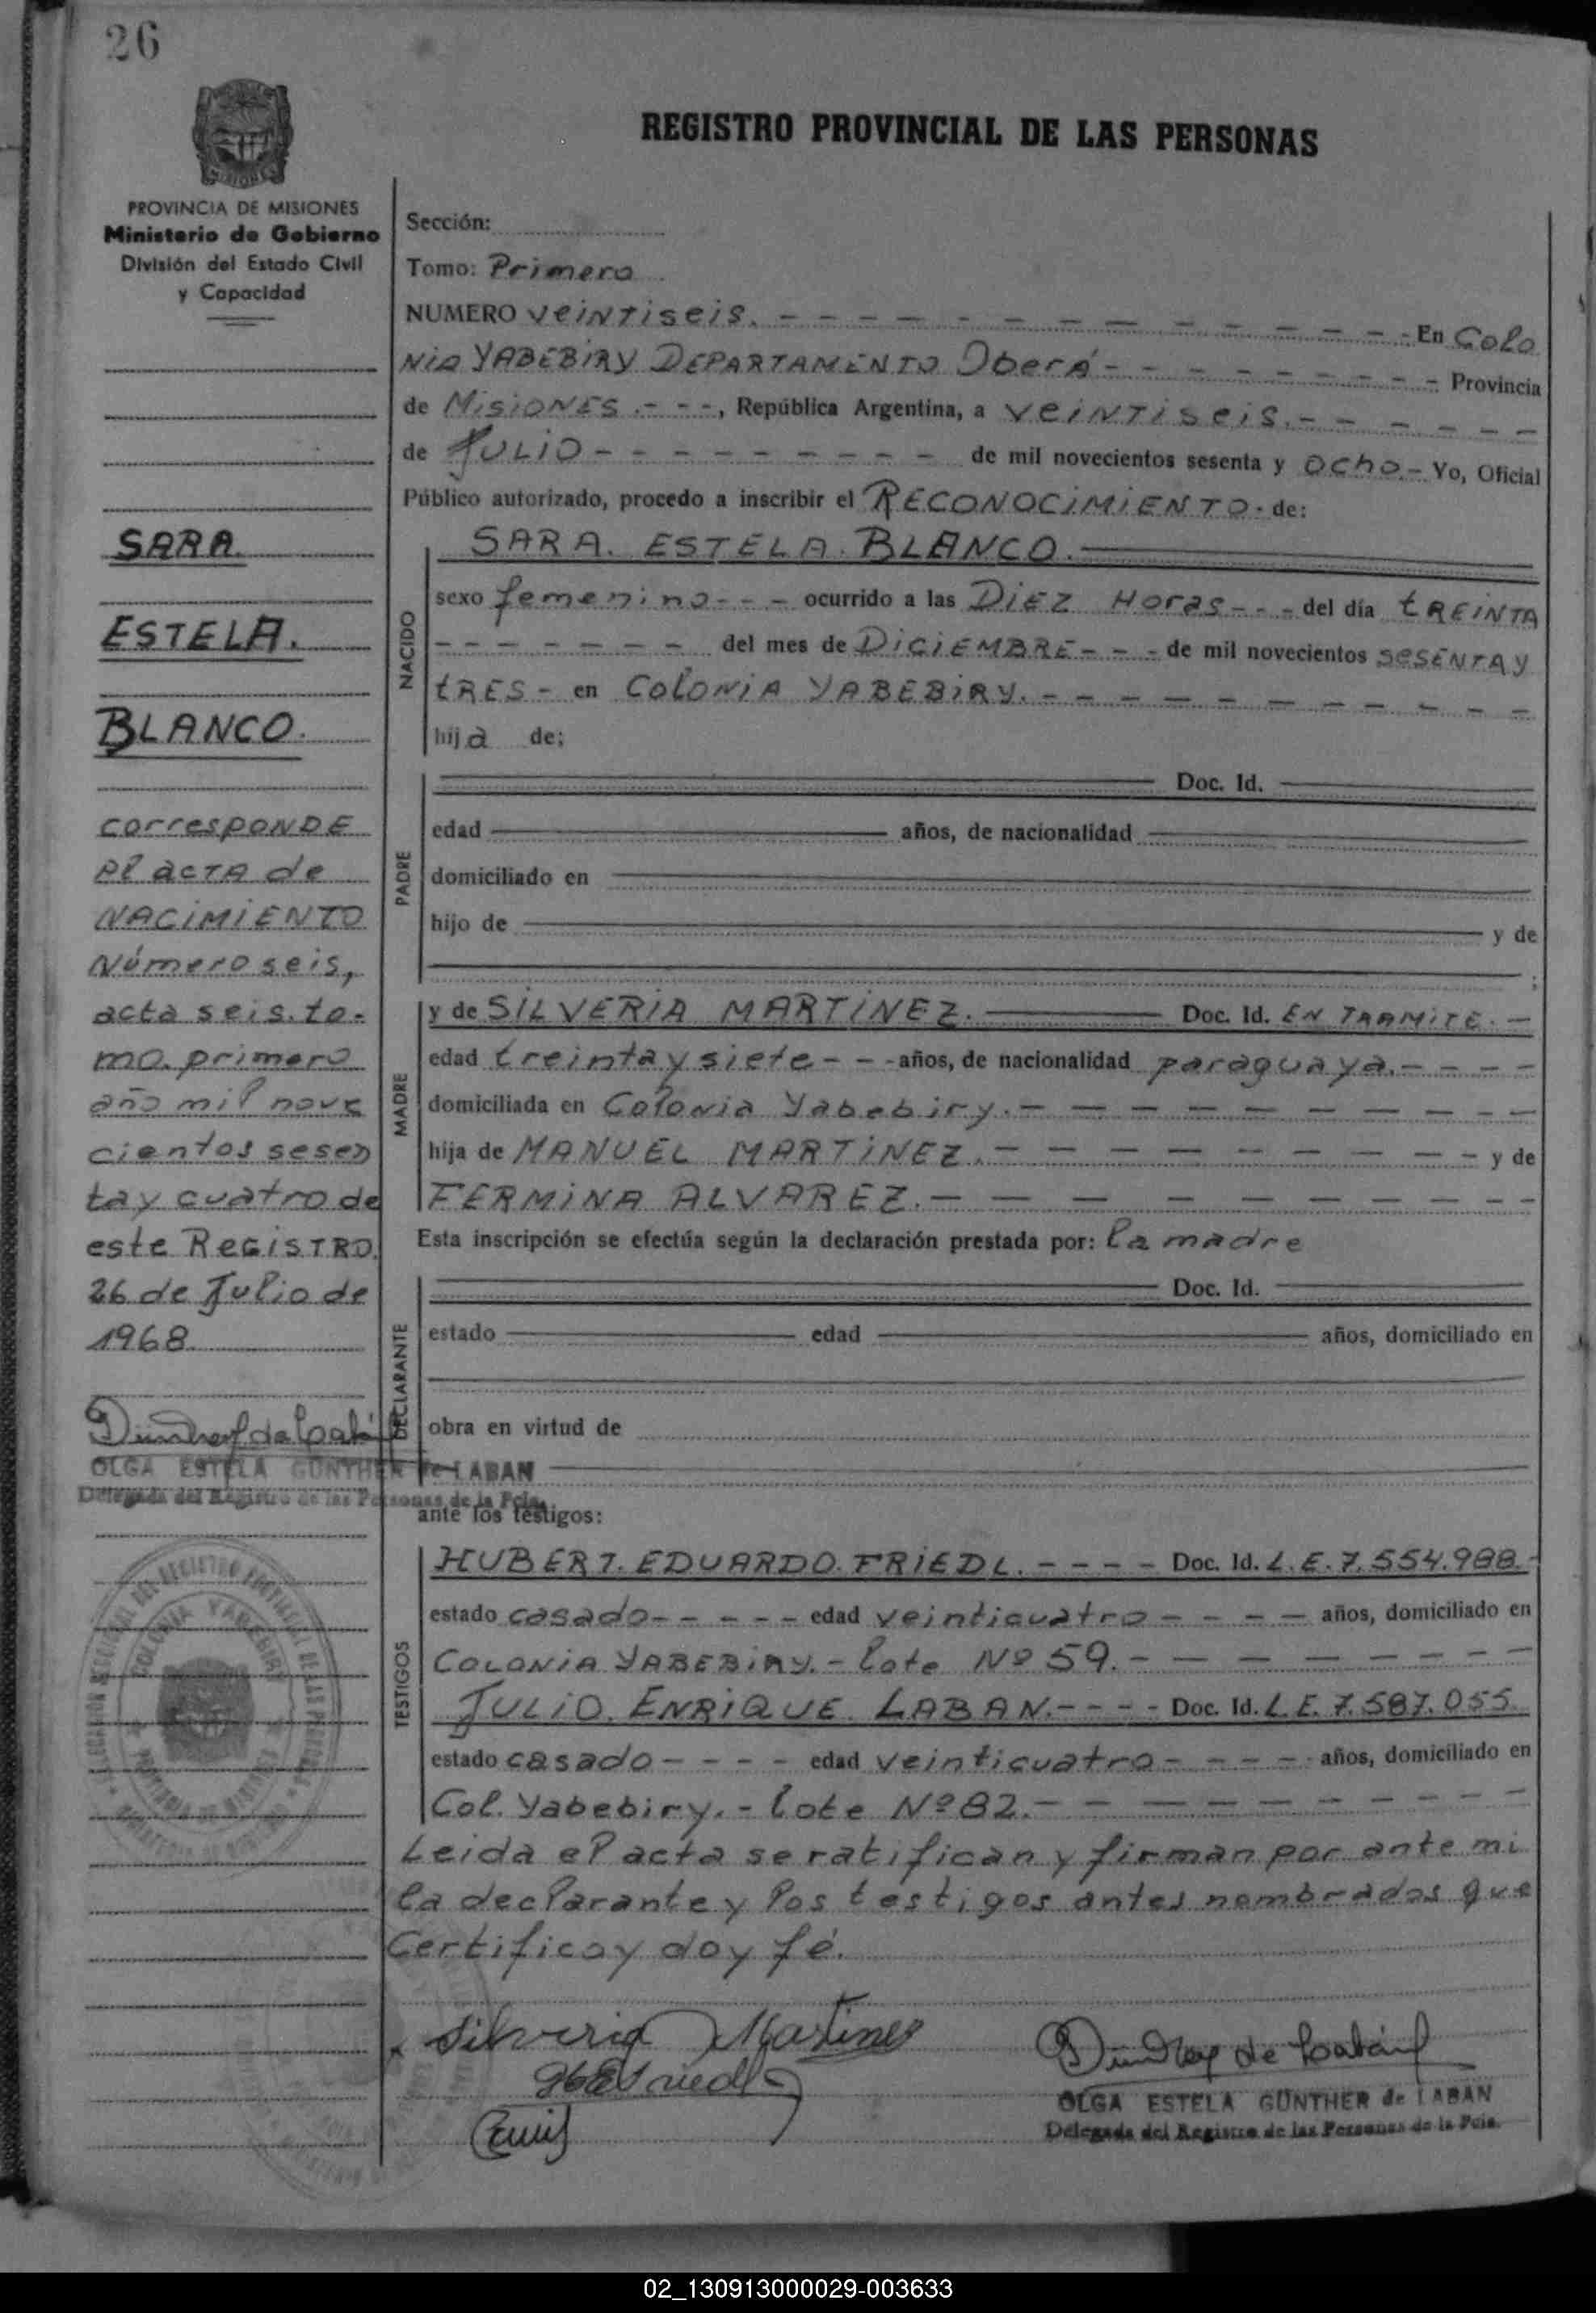 26
REGISTRO PROVINCIAL DE LAS PERSONAS
MISIONES
PROVINCIA DE MISIONES
Ministerio de Gobierno
División del Estado Civil
y Capacidad
SARA.
ESTELA.
BLANCO.
corresponde
al acta de
NACIMIENTO
Número seis,
acta seis. to-
mo. primero
año mil nove
cientos sesen
ta y cuatro de
este REGISTRO.
26 de Julio de
1968
OLGA ESTELA GÜNTHER de LABAN
Delegada del Registro de las Personas de la Pcia.
COLONIA YABEBIRI
Sección:
Tomo: Primero
NUMERO veintiseis. - - - - - - - - - - - En Colo
nia YABEBIRY DEPARTAMENTO Oberá - - - - - - - - Provincia
de MISIONES. - - -, República Argentina, a veintiseis. - - - - - -
de JULIO - - - - - - - - - de mil novecientos sesenta y ocho. - Yo, Oficial
Público autorizado, procedo a inscribir el RECONOCIMIENTO. de:
NACIDO
SARA. ESTELA. BLANCO.
sexo femenino - - - ocurrido a las DIEZ Horas - - - del día TREINTA
- - - - - - - del mes de DICIEMBRE - - - de mil novecientos SESENTA Y
TRES - en COLONIA YABEBIRY. - - - - - - - - - -
hija de;
PADRE
Doc. Id.
edad años, de nacionalidad
domiciliado en
hijo de y de
;
MADRE
y de SILVERIA MARTINEZ. Doc. Id. EN TRAMITE. -
edad treinta y siete - - - años, de nacionalidad paraguaya. - - - -
domiciliada en Colonia Yabebiry. - - - - - - - - - -
hija de MANUEL MARTINEZ. - - - - - - - - - y de
FERMINA ALVAREZ. - - - - - - - - - -
Esta inscripción se efectúa según la declaración prestada por: la madre
DECLARANTE
Doc. Id.
estado edad años, domiciliado en
obra en virtud de
ante los testigos:
TESTIGOS
HUBERT. EDUARDO. FRIEDL. - - - - Doc. Id. L.E. 7.554.988.-
estado casado - - - - - edad veinticuatro - - - - años, domiciliado en
COLONIA YABEBIRY. - lote Nº 59. - - - - - - - - -
JULIO. ENRIQUE. LABAN. - - - - Doc. Id. L.E. 7.587.055.
estado casado - - - - edad veinticuatro - - - - años, domiciliado en
Col. Yabebiry. - lote Nº 82. - - - - - - - - - -
Leida el acta se ratifican y firman por ante mi
la declarante y los testigos antes nombrados que
Certifico y doy fé.
Silveria Martinez
OLGA ESTELA GÜNTHER de LABAN
Delegada del Registro de las Personas de la Pcia.
02_130913000029-003633